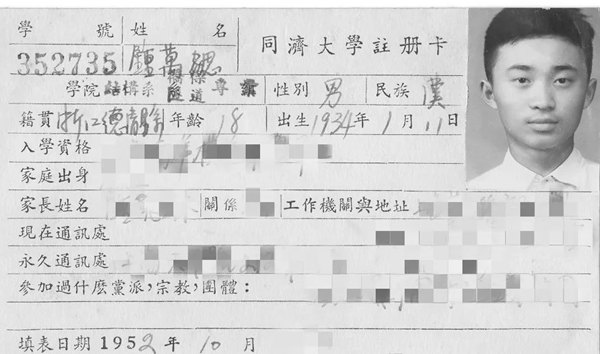 學號 姓名 同濟大學註册卡
352735 鍾萬勰
學院 結構系 橋樑 隧道 專業 性別 男 民族 漢
籍貫 浙江德清縣 年齡 18 出生 1934年 1月 11日
入學資格
家庭出身
家長姓名 關係 工作機關與地址
現在通訊處
永久通訊處
參加過什麽黨派,宗教,團體:
填表日期 1952年 10月